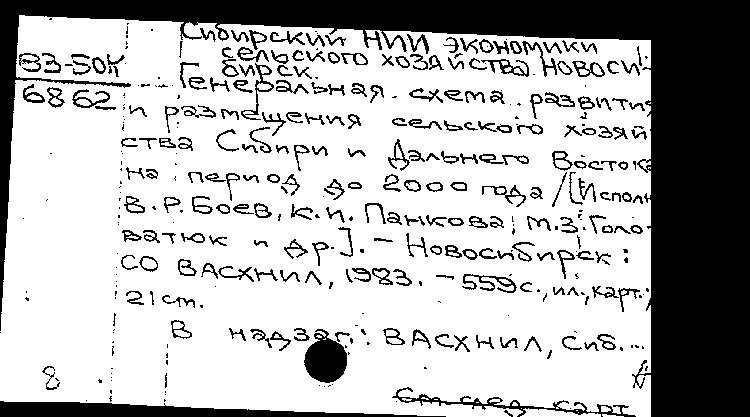 Сибирский НИИ экономики
сельского хозяйства. Новоси-
бирск.
83-50К
6862
Генеральная схема развития
и размещения сельского хозяй
ства Сибири и Дальнего Востока
на период до 2000 года / [Исполн
В.Р. Боев, К.П. Панкова, М.З. Голо-
ватюк и др.]. – Новосибирск:
СО ВАСХНИЛ, 1983. – 559 с., ил., карт.;
21 cm.
В надзаг.: ВАСХНИЛ, Сиб...
8
См след карт